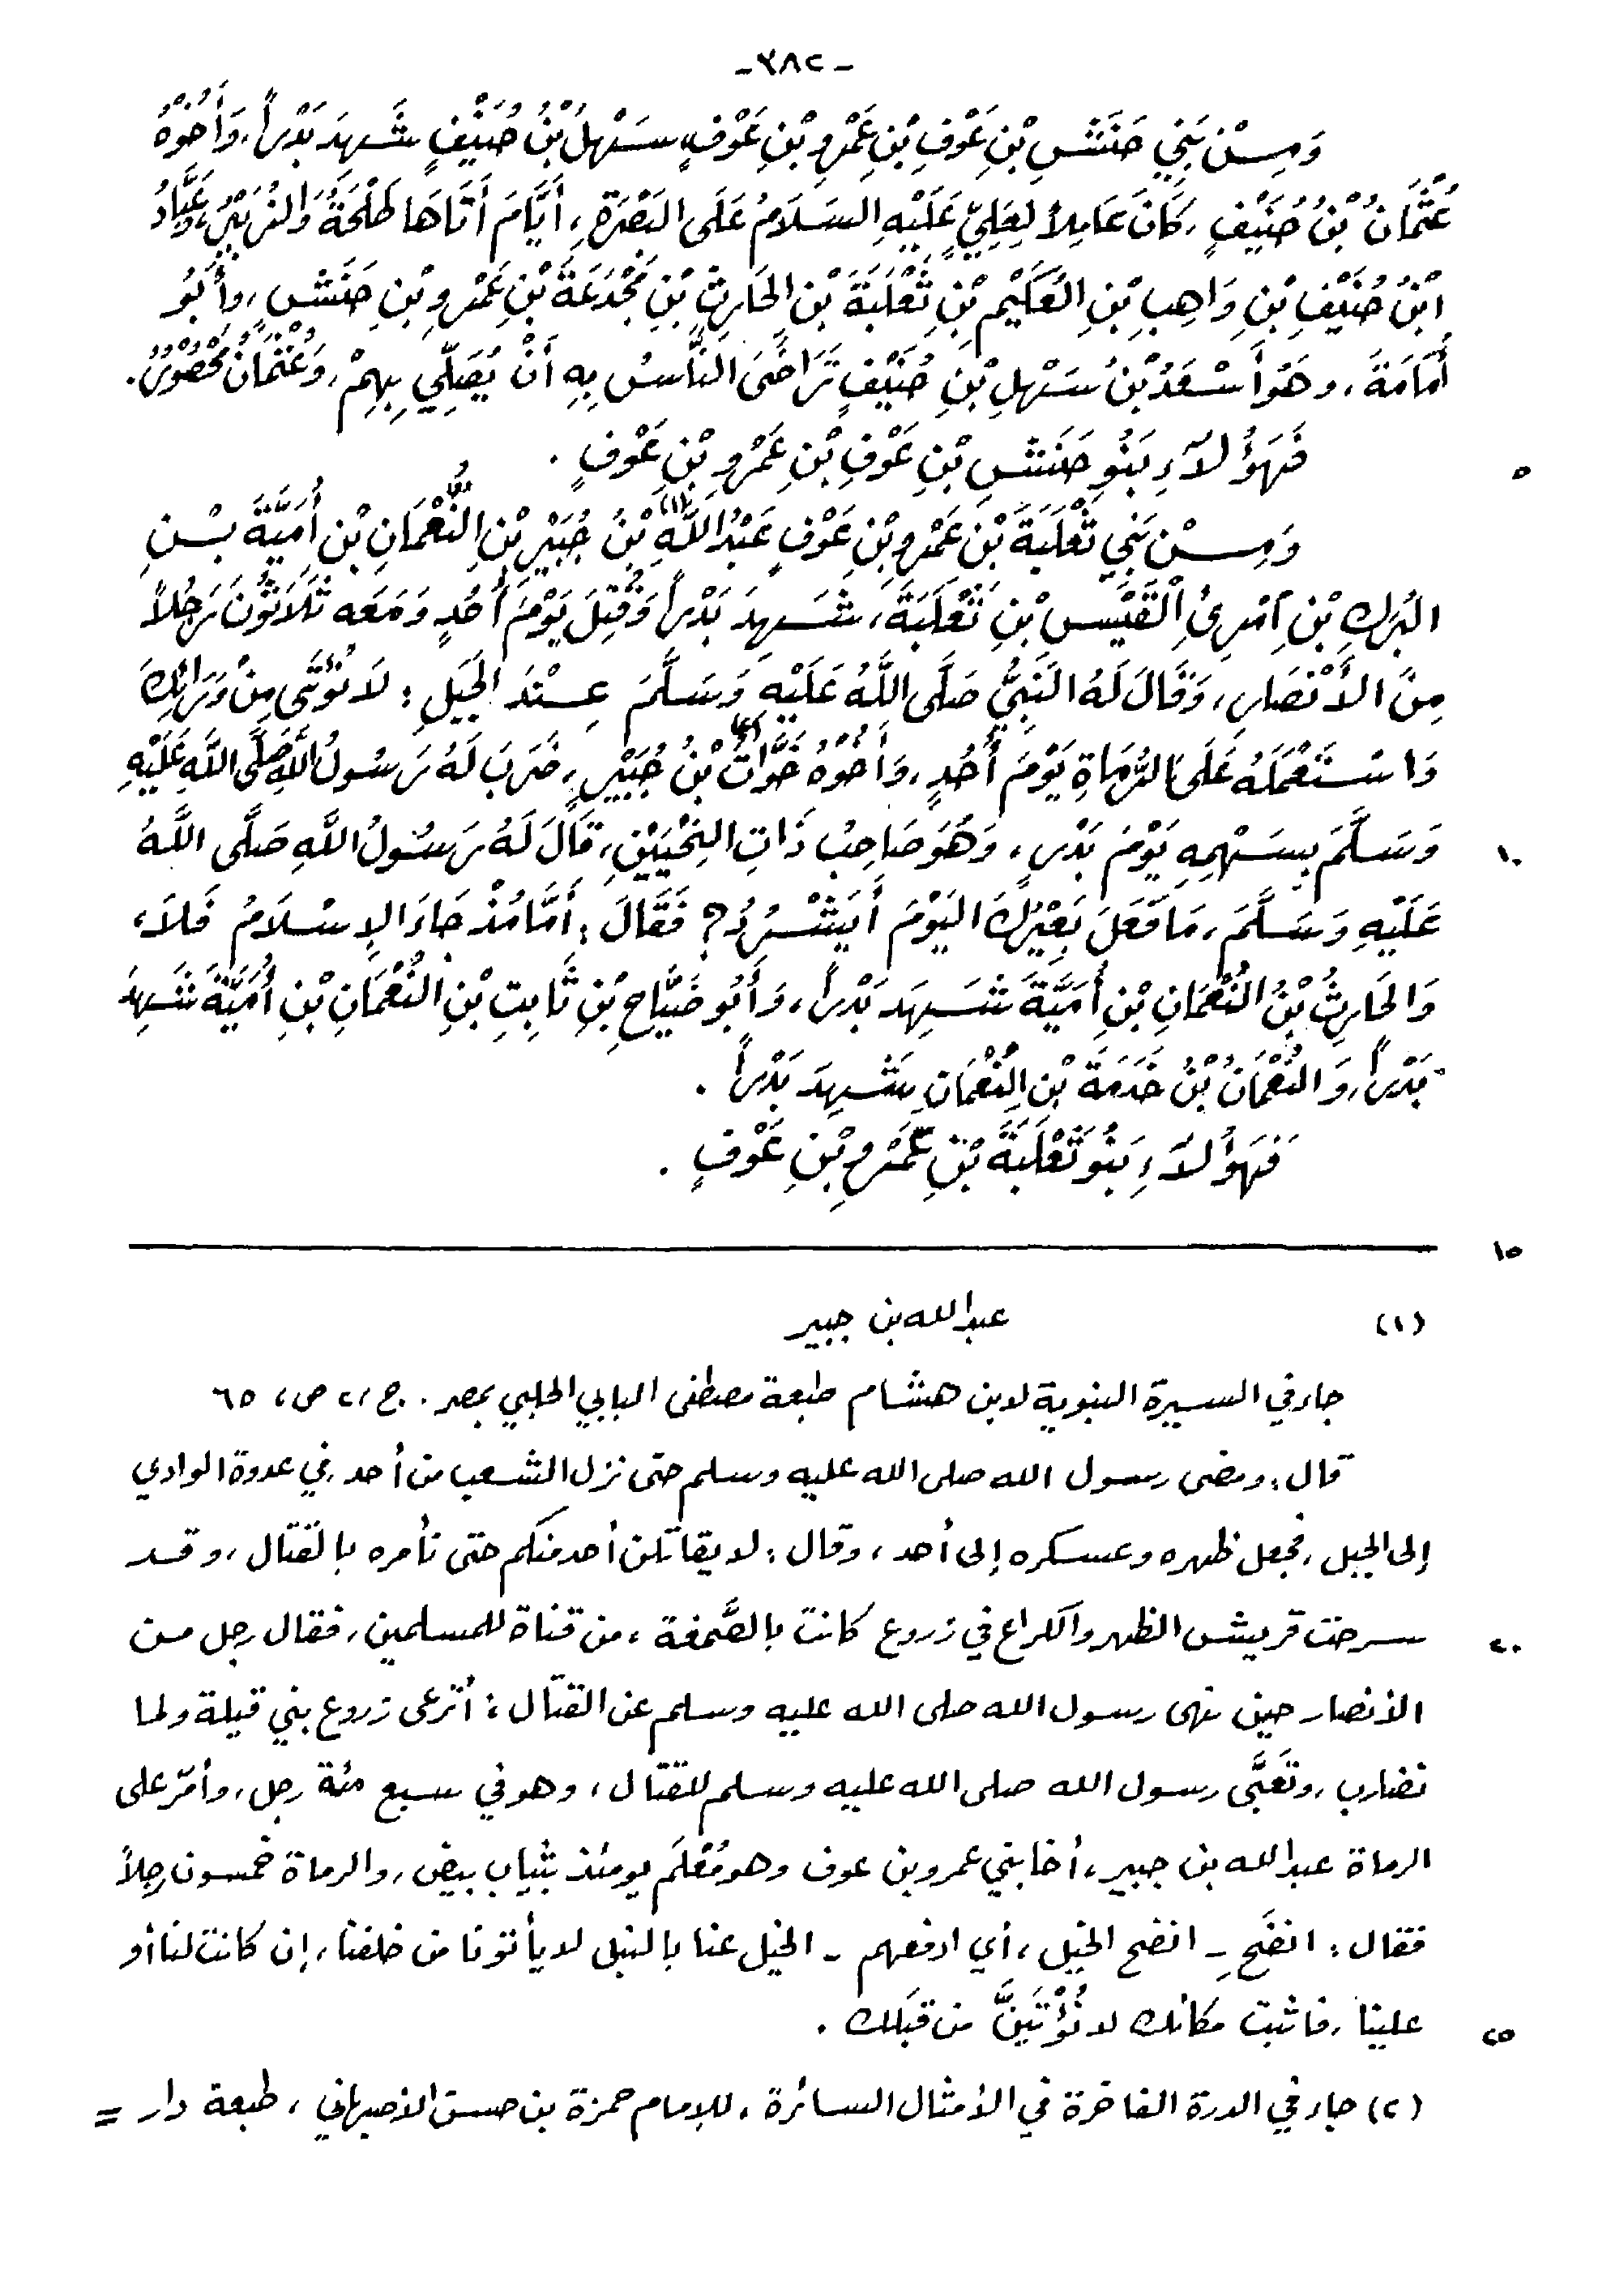 -٣٨٢-
وَمِسْن بَنِي حَنَشِ بْنِ عَوْفِ بْنِ عَمْرِو بْنِ عَوْفٍ سَهْلُ بْنُ حُنَيْفٍ شَهِدَ بَدْراً، وَأَخُوْهُ
عُثْمَانُ بْنُ حُنَيْفٍ، كَانَ عَامِلاً لِعَلِيٍّ عَلَيْهِ السَلَامُ عَلَى البَصْرَةِ، أَيَّامَ أَتَاهَا طَلْحَةُ وَالزُبَيْرُ، وَعَبَّادُ
ابْنُ حُنَيْفِ بْنِ وَاهِبِ بْنِ العُكَيْمِ بْنِ ثَعْلَبَةَ بْنِ الحَارِثِ بْنِ مَجْدَعَةَ بْنِ عَمْرِو بْنِ حَنَشٍ، وأَبُو
أُمَامَةَ، وهَوُ أَسْعَدُ بْنُ سَهْلِ بْنِ حُنَيْفٍ تَرَاضَى النَّاسُ بِهِ أَنْ يُصَلِّي بِهِمْ، وَعُثْمَانُ مَحْصُوْرٌ.
فَهَؤُلاَءِ بَنُو حَنَشِ بْنِ عَوْفِ بْنِ عَمْرِو بْنِ عَوْفٍ .
٥
وَمِسْن بَنِي ثَعْلَبَةَ بْنِ عَمْرِو بْنِ عَوْفٍ عَبْدُ اللَّهِ (١) بْنُ جُبَيْرِ بْنِ النُّعْمَانِ بْنِ أُمَيَّةَ بْسنِ
البُرَكِ بْنِ اَمْرِئِ القَيْسِ بْنِ ثَعْلَبَةَ، شَهِدَ بَدْراً وَقُتِلَ يَوْمَ أُحُدٍ وَمَعَه ثَلَاثُونَ رَجُلاً
مِنَ الأَنْصَارِ، وَقَالَ لَهُ النَبِيُّ صَلَّى اللَّهُ عَلَيْهِ وَسَلَّمَ عِسْنْدَ الجَبَلِ: لَا نُؤتَى مِنْ وَرَائِكَ
وَاسْتَعْمَلَهُ عَلَى الرُّمَاةِ يَوْمَ أُحُدٍ، وَأَخُوْهُ خَوَّاتُ (٢) بْنُ جُبَيْرٍ، ضَرَبَ لَهُ رَسُولُ اللَّهِ صَلَّى اللَّهُ عَلَيْهِ
وَسَلَّمَ بِسَهْمِهِ يَوْمَ بَدْرٍ، وَهُوَ صَاحِبُ ذَاتِ النِحْيَيْنِ، قَالَ لَهُ رَسُولُ اللَّهِ صَلَّى اللَّهُ
١٠
عَلَيْهِ وَسَلَّمَ، مَا فَعَلَ بَعِيْرُكَ اليَوْمَ أَيَشْرُدُ؟ فَقَالَ: أَمَّا مُنْذُ جَاءَ الإِسْلَامُ فَلَا،
وَالحَارِثُ بْنُ النُعْمَانِ بْنِ أُمَيَّةَ شَهِدَ بَدْراً، وَأَبُو ضَيَّاحِ بْنِ ثَابِتِ بْنِ النُعْمَانِ بْنِ أُمَيَّةَ شَهِدَ
بَدْراً، وَالنُعْمَانُ بْنُ خَدَمَةَ بْنِ النُعْمَانِ شَهِدَ بَدْراً .
فَهَؤُلاَءِ بَنُو ثَعْلَبَةَ بْنِ عَمْرِو بْنِ عَوْفٍ .
١٥
(١) عبد الله بن جبير
جاء في السيرة النبوية لابن هشام طبعة مصطفى البابي الحلبي بمصر . ج ،٢ ص ، ٦٥
قال : ومضى رسول الله صلى الله عليه وسلم حتى نزل الشعب من أحد، في عدوة الوادي
إلى الجبل ، فجعل ظهره وعسكره إلى أحد ، وقال : لا يقاتلن أحد منكم حتى نأمره بالقتال ، وقد
سرحت قريش الظهر والكراع في زروع كانت بالصَّمغة ، من قناة للمسلمين ، فقال رجل من
٢٠
الأنصار حين نهى رسول الله صلى الله عليه وسلم عن القتال : أترعى زروع بني قيلة ولما
نضارب ، وتَعَبَّى رسول الله صلى الله عليه وسلم للقتال ، وهو في سبع مئة رجل ، وأمّر على
الرماة عبد الله بن جبير ، أخا بني عمرو بن عوف وهو مُعْلَم يومئذ بثياب بيض ، والرماة خمسون رجلاً
فقال : انضَحِ - انضح الخيل ، أي ادفعهم - الخيل عنا بالنبل لا يأتونا من خلفنا ، إن كانت لنا أو
علينا ، فاثبت مكانك لا نُؤْتَيَنَّ من قبَلك .
٢٥
(٢) جاء في الدرة الفاخرة في الأمثال السائرة ، للإمام حمزة بن حسن الأصبهاني ، طبعة دار =